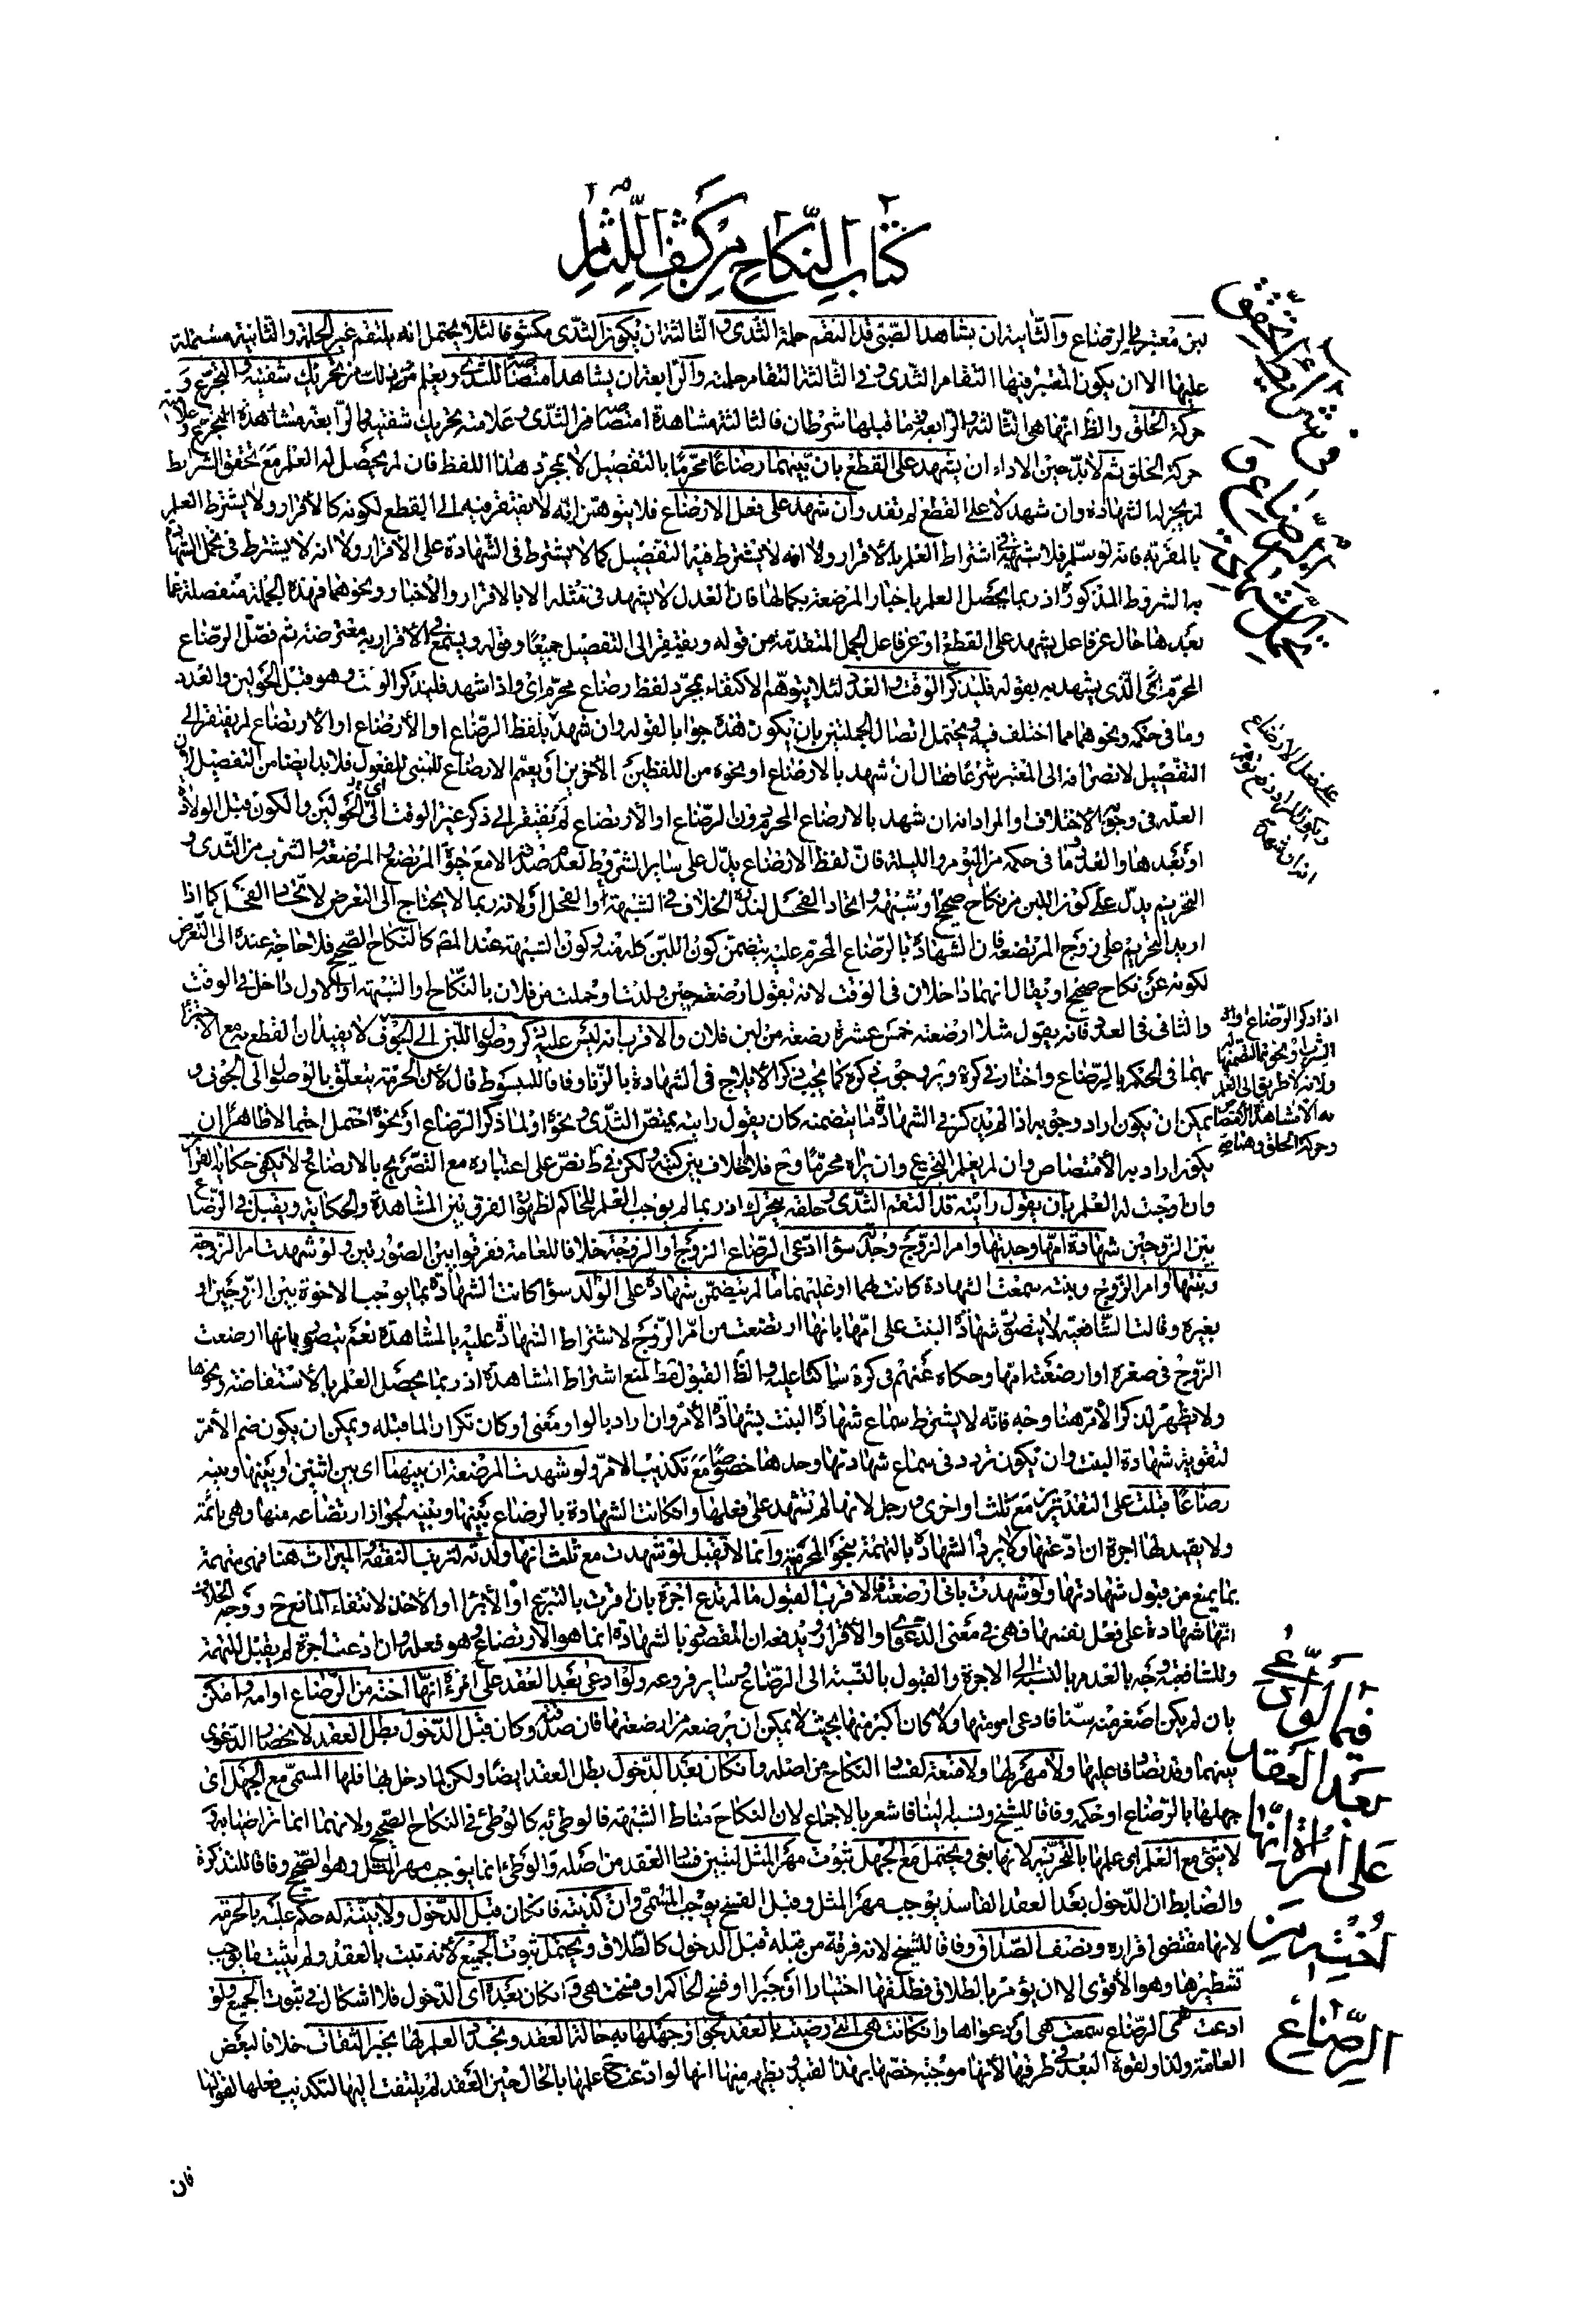 كتاب النكاح من كشف اللثام
لبن معتبر في الرضاع والثانية ان يشاهد الصبي قد التقم حلمة الثدي والثالثة ان يكون الثدي مكشوفا لئلا يحتمل انه يلتقم غير الحلمة والثانية مشتملة
عليها الا ان يكون المعتبر فيها التقام الثدي وفي الثالثة التقام حلمته والرابعة ان يشاهد امتصاصه للثدي ويعلم من ذلك من تحريك شفتيه والتجرع و
حركة الحلق والظ انها هي الثالثة والرابعة وما قبلها شرطان فالثالثة مشاهدة امتصاص الثدي وعلامته تحريك شفتيه والرابعة مشاهدة التجرع وعلامته
حركة الحلق ثم لا بد حين الاداء ان يشهد على القطع بان بينهما رضاعا محرما بالتفصيل لا بمجرد هذا اللفظ فان لم يحصل له العلم مع تحقق الشرايط
لم يجز له الشهادة وان شهد لا على القطع لم تفد وان شهد على فعل الارضاع فلا يتوهمن انه لا يفتقر فيه الى القطع لكونه كالاقرار ولا يشترط العلم
بالمقر به فانه لو سلم فلا شبهة في اشتراط العلم بالاقرار ولا انه لا يشترط فيه التفصيل كما لا يشترط في الشهادة على الاقرار ولا انه لا يشترط في تحمل الشهادة
به الشروط المذكورة اذ ربما يحصل العلم باخبار المرضعة بكمالها فان العدل لا يشهد في مثله الا بالاقرار والاخبار ونحوهما فهذه الجملة منفصلة عما
بعدها حال عن فاعل يشهد على القطع او عن فاعل الجمل المتقدمة من قوله ويفتقر الى التفصيل جميعا وقوله ويستمع في الاقرار به معترضة ثم فصل الرضاع
المحرم اي الذي يشهد به بقوله فليذكر الوقت والعدد لئلا يتوهم الاكتفاء بمجرد لفظ رضاع محرم اي واذا شهد فليذكر الوقت وهو قبل الحولين والعدد
وما في حكمه ونحوهما مما اختلف فيه ويحتمل اتصال الجملتين بان يكون هذه جوابا لقوله وان شهد بلفظ الرضاع او الارضاع او الارتضاع لم يفتقر الى
التفصيل لانصرافه الى المعتبر شرعا فقال ان شهد بالارضاع او نحوه من اللفظين الاخرين او يعم الارضاع للمبني للمفعول فلا بد ايضا من التفصيل لان
العلة في وجوبه الاختلاف او المراد انه ان شهد بالارضاع المحرم دون الرضاع او الارتضاع لم يفتقر الى ذكر غير الوقت اي الحولين والكون قبل الولادة
او بعدها والعدد وما في حكمه من اليوم والليلة فان لفظ الارضاع يدل على ساير الشروط لعدم صدقه الا مع حيوة المرتضع والمرضعة والشرب من الثدي و
التحريم يدل على كون اللبن من نكاح صحيح او شبهة واتحاد الفحل لندرة الخلاف في الشبهة او الفحل او لانه ربما لا يحتاج الى التعرض لاتحاد الفحل كما اذا
اريد التحريم على زوج المرتضعة فان الشهادة بالرضاع المحرم عليه يتضمن كون اللبن كله منه وكون الشبهة عند المصم كالنكاح الصحيح فلا حاجة عنده الى التعرض
لكونه عن نكاح صحيح او يقال انهما داخلان في الوقت لانه يقول ارضعته حين ولدت او حملت من فلان بالنكاح او الشبهة او الاول داخل في الوقت
والثاني في العدد فانه يقول مثلا ارضعته خمس عشرة رضعة من لبن فلان والاقرب انه ليس عليه ذكر وصول اللبن الى الجوف لا يفيد ان القطع به مع الاجتزاء
بهما في الحكم بالرضاع واختار في كرة وثر وجوب ذكره كما يجب ذكر الايلاج في الشهادة بالزنا وفاقا للمبسوط قال لان الحرمة يتعلق بالوصول الى الجوف و
يمكن ان يكون اراد وجوبه اذا لم يذكر في الشهادة ما يتضمنه كان يقول رايته يمتص الثدي ونحوه او لما ذكر الرضاع او نحوه احتمل احتمالا ظاهرا ان
يكون اراد به الامتصاص وان لم يعلم التجرع وان يراه محرما وح فلا خلاف بين كتبه ولكن في ط نص على اعتباره مع التصريح بالارضاع ولا يكفي حكاية القراين
وان اوجبت له العلم بان يقول رايته قد التقم الثدي وحلقه يتحرك اذ ربما لم يوجب العلم للحاكم لظهور الفرق بين المشاهدة والحكاية ويقبل في الرضاع
بين الزوجين شهادة امها وجدتها وام الزوج وجدته سواء ادعى الرضاع الزوج او الزوجة خلافا للعامة ففرقوا بين الصورتين ولو شهدت ام الزوجة
وبنتها او ام الزوج وبنته سمعت الشهادة كانت لهما او عليهما ما لم يتضمن شهادة على الوالد سواء كانت الشهادة بما يوجب الاخوة بين الزوجين او
بغيره وقالت الشافعية لا يتصور شهادة البنت على امها بانها ارتضعت من ام الزوج لاشتراط الشهادة عليه بالمشاهدة نعم يتصور بانها ارضعت
الزوج في صغره او ارضعته امها وحكاه عنهم في كرة ساكتا عليه والظ القبول قط لمنع اشتراط المشاهدة اذ ربما يحصل العلم بالاستفاضة ونحوها
ولا يظهر لذكر الام هنا وجه فانه لا يشترط سماع شهادة البنت بشهادة الام وان اراد بالواو معنى او كان تكرارا لما قبله ويمكن ان يكون ضم الام
لتقوية شهادة البنت وان يكون تردد في سماع شهادتها وحدها خصوصا مع تكذيب الام ولو شهدت المرضعة ان بينهما اي بين اثنين او بينها وبينه
رضاعا قبلت على التقديرين مع ثلث او اخرى ورجل لانها لم تشهد على فعلها وان كانت الشهادة بالرضاع بينها وبينه لجواز ارتضاعه منها وهي نائمة
ولا يقيد لها اجرة ان ادعتها ولا يرد الشهادة بالتهمة بنحو المحرمية وانما لا تقبل لو شهدت مع ثلث انها ولدته لترتب النفقة والميراث هنا فهي متهمة
بما يمنع من قبول شهادتها ولو شهدت باني ارضعته فالاقرب القبول ما لم تدع اجرة بان اقرت بالتبرع او الابراء او الاخذ لانتفاء المانع ح ووجه الخلاف
انها شهادة على فعل نفسها فهي في معنى الدعوى او الاقرار ويدفعه ان المقصود بالشهادة انما هو الارتضاع وهو فعله وان ادعت اجرة لم يقبل للتهمة
وللشافعية وجه بالعدم بالنسبة الى الاجرة والقبول بالنسبة الى الرضاع وساير فروعه ولو ادعى بعد العقد على امرأة انها اخته من الرضاع او امه وامكن
بان لم يكن اصغر منه سنا فادعى امومتها ولا كان اكبر منها بحيث لا يمكن ان يرضعه من ارضعتها فان صدقته وكان قبل الدخول بطل العقد لانحصار الدعوى
بينهما وقد تصادقا عليها ولا مهر لها ولا متعة لفساد النكاح من اصله وان كان بعد الدخول بطل العقد ايضا ولكن لما دخل بها فلها المسمى مع الجهل اي
جهلها بالرضاع او حكمه وفاقا للشيخ ونسبه لبنا قا شعر بالاجماع لان النكاح مناط الشبهة فالوطئ به كالوطئ في النكاح الصحيح ولانهما انما تراضيا به و
لا شئ مع العلم اي علمها بالتحريم لانها بغي ويحتمل مع الجهل ثبوت مهر المثل لتبين فساد العقد من اصله والوطئ انما يوجب مهر المثل وهو الصحيح وفاقا للتذكرة
والضابط ان الدخول بعد العقد الفاسد يوجب مهر المثل وقبل الفسخ يوجب المسمى وان كذبته فان كان قبل الدخول ولا بينة له حكم عليه بالحرمة
لانها مقتضى اقراره ونصف الصداق وفاقا للشيخ لانه فرقة من قبله قبل الدخول كالطلاق ويحتمل ثبوت الجميع لانه ثبت بالعقد ولم يثبت ما يوجب
تشطيرها وهو الاقوى الا ان يؤمر بالطلاق فطلقها اختيارا او جبرا او فسخ الحاكم او فسخت هي وان كان بعده اي الدخول فلا اشكال في ثبوت الجميع ولو
ادعت هي الرضاع سمعت هي او دعواها وان كانت هي التي رضيت بالعقد لجواز جهلها به حالة العقد وتجدد العلم لها بخبر الثقات خلافا لبعض
العامة ولذا ولقوة البعد في طرفها لانها موجبة خصها بهذا القيد ويظهر منها انها لو ادعت ح علمها بالحال حين العقد لم يلتفت اليها لتكذيب فعلها لقولها
فان
من شرايط تحقق
الرضاع و
تحمل الشهادة
على فعل الارضاع
اذا ذكر الرضاع او
الشرب او نحوهما لتضمنها له
ولانه لا طريق الى العلم
به الا مشاهدة الامتصاص
وحركة الحلق وهنا صح
فيما لو ادعى
بعد العقد
على امرأة انها
اخته من
الرضاع